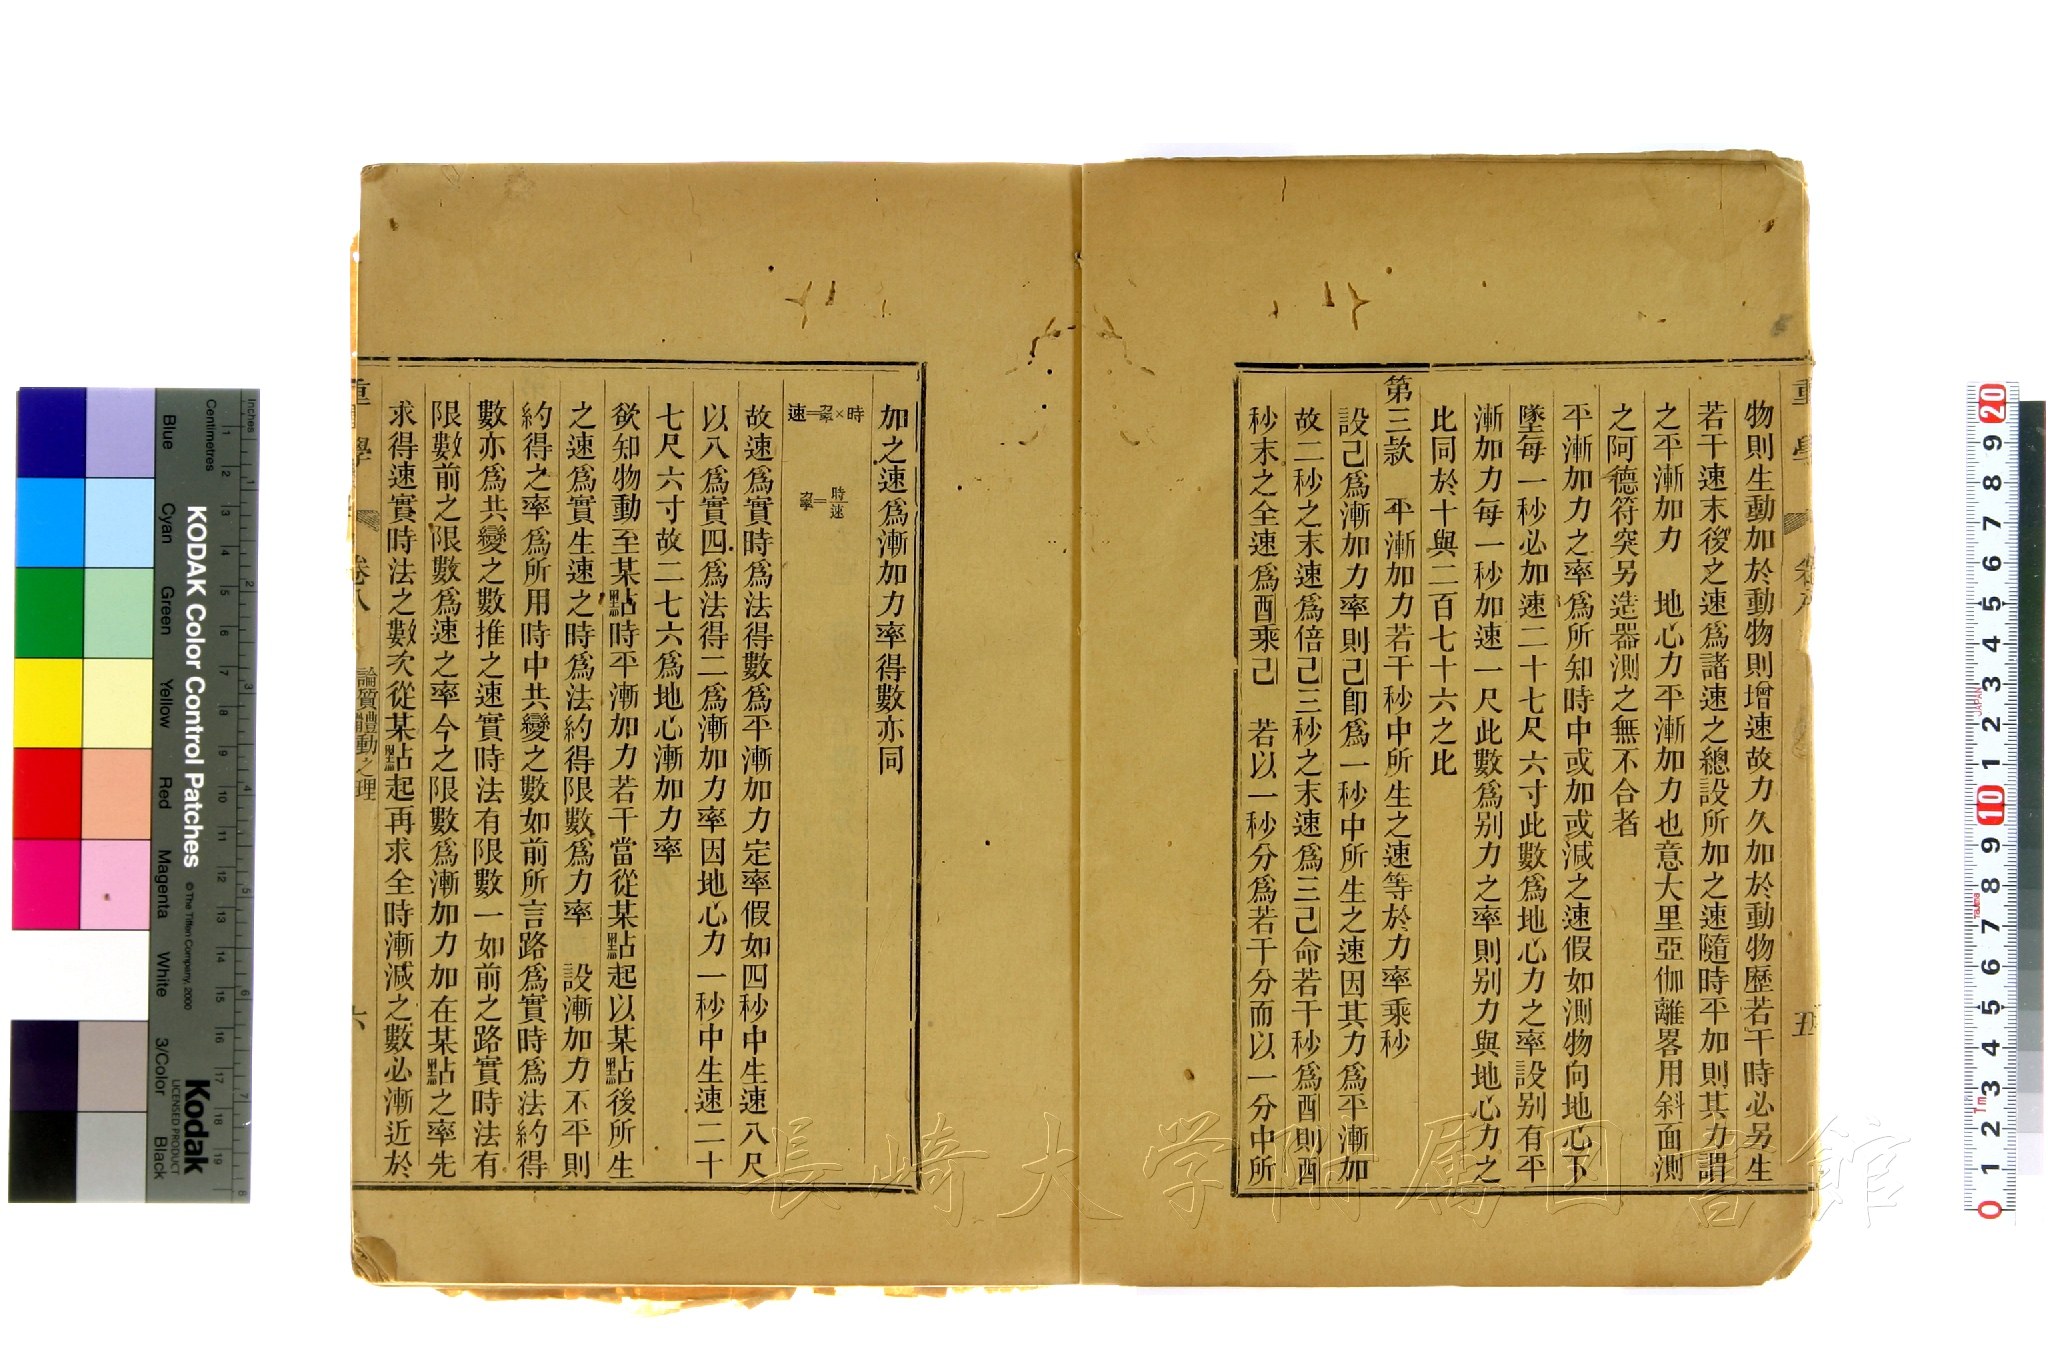 重學
卷八
五
物則生動加於動物則增速故力久加於動物歷若干時必另生
若干速末後之速爲諸速之總設所加之速隨時平加則其力謂
之平漸加力　地心力平漸加力也意大里亞伽離畧用斜面測
之阿德符突另造器測之無不合者
平漸加力之率爲所知時中或加或減之速假如測物向地心下
墜每一秒必加速二十七尺六寸此數爲地心力之率設别有平
漸加力每一秒加速一尺此數爲别力之率則别力與地心力之
比同於十與二百七十六之比
第三款　平漸加力若干秒中所生之速等於力率乘秒
設己爲漸加力率則己卽爲一秒中所生之速因其力爲平漸加
故二秒之末速爲倍己三秒之末速爲三己命若干秒爲酉則酉
秒末之全速爲酉乘己　若以一秒分爲若干分而以一分中所
加之速爲漸加力率得數亦同
時×率力=速
時
速=率力
故速爲實時爲法得數爲平漸加力定率假如四秒中生速八尺
以八爲實四爲法得二爲漸加力率因地心力一秒中生速二十
七尺六寸故二七六爲地心漸加力率
欲知物動至某點時平漸加力若干當從某點起以某點後所生
之速爲實生速之時爲法約得限數爲力率　設漸加力不平則
約得之率爲所用時中共變之數如前所言路爲實時爲法約得
數亦爲共變之數推之速實時法有限數一如前之路實時法有
限數前之限數爲速之率今之限數爲漸加力加在某點之率先
求得速實時法之數次從某點起再求全時漸減之數必漸近於
重學
卷八
論質體動之理
六
KODAK Color Control Patches
© The Tiffen Company, 2000
Kodak
LICENSED PRODUCT
Inches
Centimetres
Blue
Cyan
Green
Yellow
Red
Magenta
White
3/Color
Black
JAPAN
Tajima
長崎大学附属図書館